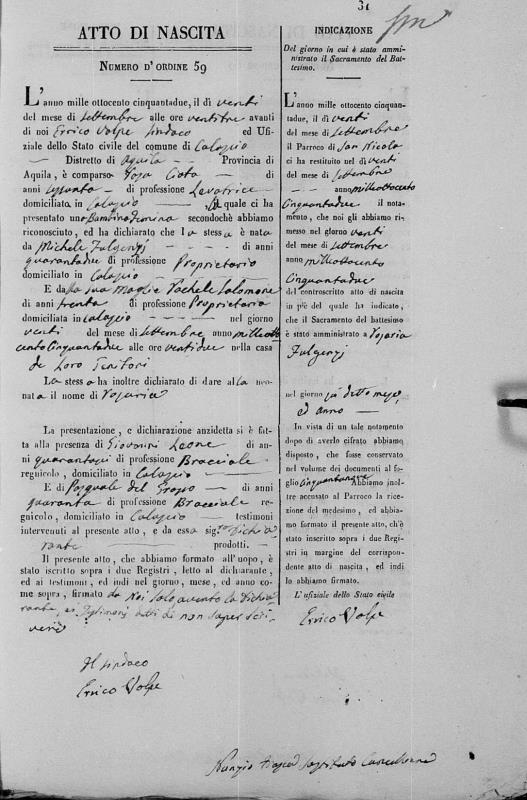 31
ATTO DI NASCITA
NUMERO D' ORDINE 59
L'anno mille ottocento cinquantadue, il dì venti
del mese di Settembre alle ore ventitre avanti
di noi Errico Volpe Sindaco ed Ufi-
ziale dello Stato civile del comune di Calascio
Distretto di Aquila Provincia di
Aquila, è comparsa Rosa Ciota di
anni sessanta di professione Levatrice
domiciliata in Calascio la quale ci ha
presentato una Bambina secondochè abbiamo
riconosciuto, ed ha dichiarato che la stessa è nata
da Michele Fulgenzj di anni
quarantadue di professione Proprietario
domiciliato in Calascio
E dalla sua moglie Rachele Salomone
di anni trenta di professione Proprietaria
domiciliata in Calascio nel giorno
venti del mese di Settembre anno milleotto
cento Cinquantadue alle ore ventidue nella casa
de Loro Genitori
La stessa ha inoltre dichiarato di dare alla neo-
nata il nome di Rosaria
La presentazione, e dichiarazione anzidetta si è fat-
ta alla presenza di Giovanni Leone di an-
ni di professione Bracciale
regnicolo, domiciliato in Calascio
E di Pasquale del Grosso di anni
quaranta di professione Bracciale re-
gnicolo, domiciliato in Calascio testimoni
intervenuti al presente atto, e da essa sig.ra Dichia
rante prodotti.
Il presente atto, che abbiamo formato all'uopo, è
stato iscritto sopra i due Registri, letto al dichiarante,
ed ai testimoni, ed indi nel giorno, mese, ed anno co-
me sopra, firmato da Noi solo avendo la Dichia
rante, ei Testimonj detto di non saper scri
vere
Il Sindaco
Errico Volpe
INDICAZIONE
Del giorno in cui è stato ammi-
nistrato il Sacramento del Bat-
tesimo.
L'anno mille ottocento cinquan-
tadue, il dì venti
del mese di Settembre
il Parroco di San Nicola
ci ha restituito nel dì venti
del mese di Settembre
anno milleottocento
Cinquantadue il nota-
mento, che noi gli abbiamo ri-
messo nel giorno venti
del mese di Settembre
anno milleottocento
Cinquantadue
del controscritto atto di nascita
in piè del quale ha indicato,
che il Sacramento del battesimo
è stato amministrato a Rosaria
Fulgenzj
nel giorno già detto mese,
ed anno
In vista di un tale notamento
dopo di averlo cifrato abbiamo
disposto, che fosse conservato
nel volume dei documenti al fo-
glio Abbiamo inol-
tre accusato al Parroco la rice-
zione del medesimo, ed abbia-
mo formato il presente atto, ch'è
stato inscritto sopra i due Regi-
stri in margine del corrispon-
dente atto di nascita, ed indi
lo abbiamo firmato.
L'ufiziale dello Stato civile
Errico Volpe
Nunzio Sostituto Cancelliere